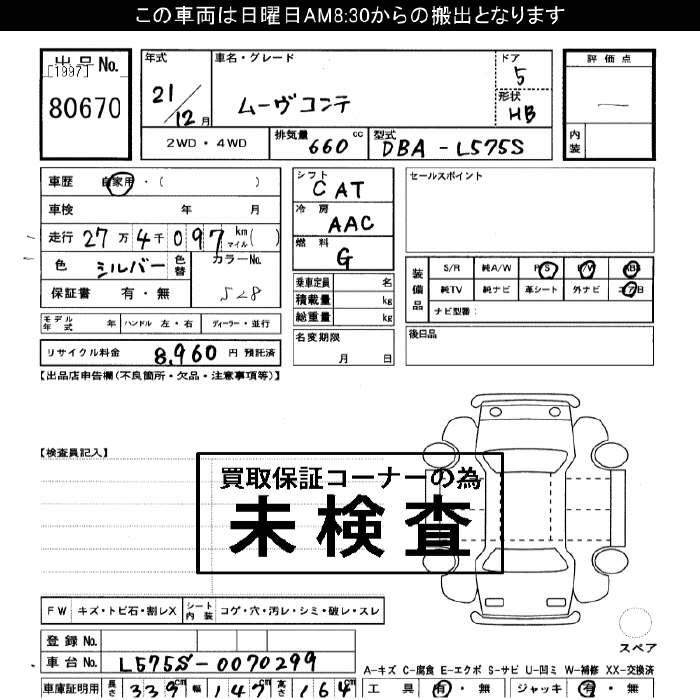 この車両は日曜日AM8:30からの搬出となります
出品No.
[1997]
80670
年式
21/12月
車名・グレード
ムーヴコンテ
ドア
5
形状
HB
評価点
―
内装
2WD・4WD
排気量 660 cc
型式 DBA-L575S
車歴 自家用・( )
車検 年 月
走行 27万4千097 km マイル( )
色 シルバー 色替 カラーNo. S28
保証書 有・無
モデル年式 年 ハンドル 左・右 ディーラー・並行
リサイクル料金 8,960 円 預託済
シフト
CAT
冷房
AAC
燃料
G
乗車定員 名
積載量 kg
総重量 kg
名変期限
月 日
セールスポイント
装備品
S/R 純A/W P/S P/W ABS
純TV 純ナビ 革シート 外ナビ エアB
ナビ型番:
後日品
【出品店申告欄(不良箇所・欠品・注意事項等)】
【検査員記入】
買取保証コーナーの為
未検査
FW キズ・トビ石・割レX シート内装 コゲ・穴・汚レ・シミ・破レ・スレ
スペア
登録No.
車台No. L575S-0070299
A-キズ C-腐食 E-エクボ S-サビ U-凹ミ W-補修 XX-交換済
車庫証明用 長さ 339cm 幅 147cm 高さ 164cm
工具 有・無 ジャッキ 有・無